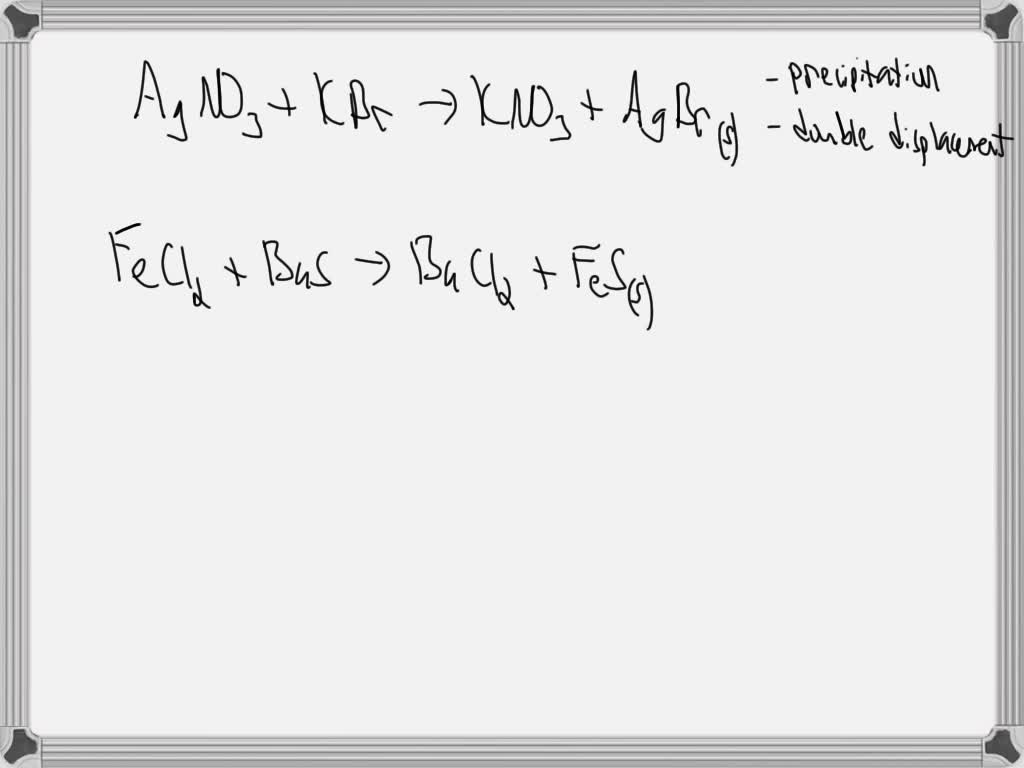 AgNO₃ + KBr → KNO₃ + AgBr(s)
- precipitation
- double displacement
FeCl₂ + BaS → BaCl₂ + FeS(s)